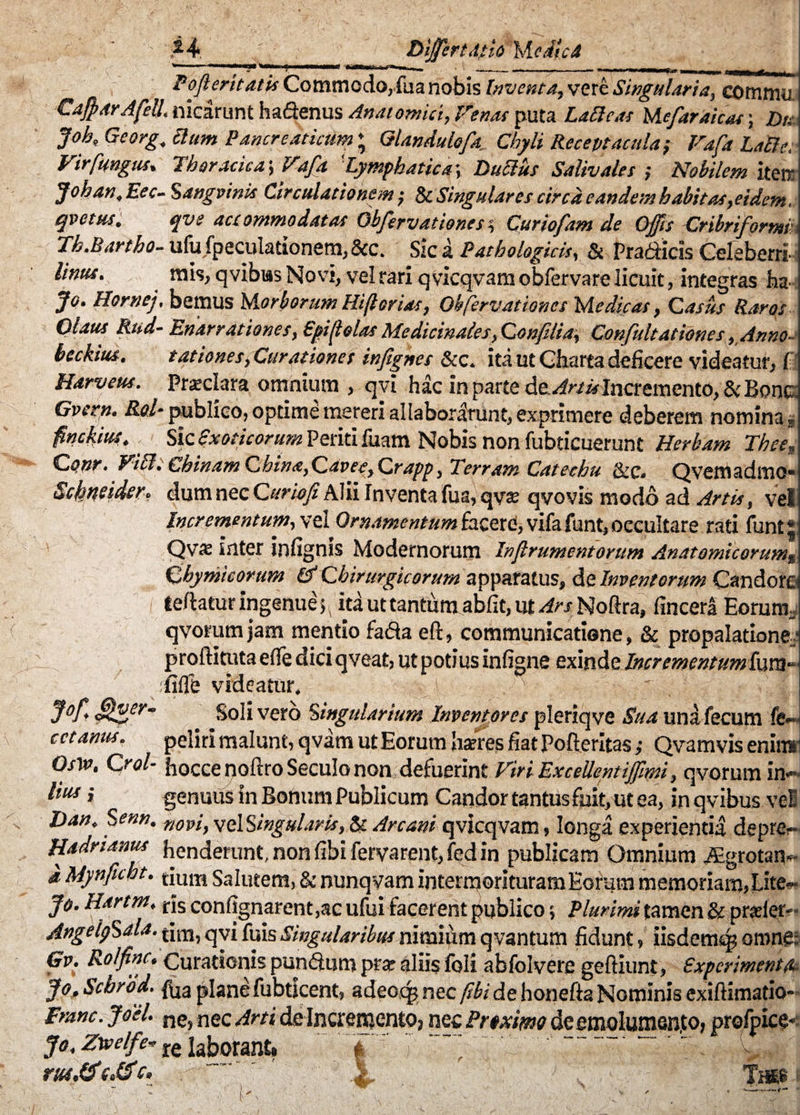 24 Dissertatio Medica
Posteritatis Commodo, sua nobis Inventa, verè Singularia, commu
Caspar Asell. nicârunt hactenus Anatomici, Venas puta Lacteas Mesaraicas; Du
Joh. Georg. ctum Pancreaticum; Glandulosa Chyli Receptacula; Vasa Lacte.
Virsungus. Thoracica; Vasa Lymphatica; Ductus Salivales; Nobilem item
Johan. Eec- Sangvinis Circulationem; & Singulares circà eandem habitas, eidem.
qvetus. qve accommodatas Observationes; Curiosam de Ossis Cribriformi
Th. Bartho- usu speculationem, &c. Sic à Pathologicis, & Practicis Celeberri-
linus. mis, qvibus Novi, vel rari qvicqvam observare licuit, integras ha-
Jo. Hornej. bemus Morborum Historias, Observationes Medicas, Casus Raros
Olaus Rud- Enarrationes, Epistolas Medicinales, Consilia, Consultationes, Anno-
beckius. tationes, Curationes insignes &c. ità ut Charta deficere videatur, si
Harveus. Præclara omnium, qvi hâc in parte de Artis Incremento, & Bono
Gvern. Rol- publico, optimè mereri allaborârunt, exprimere deberem nomina.
finckius. Sic Exoticorum Periti suam Nobis non subticuerunt Herbam Thee,
Conr. Vict. Chinam Chinæ, Cavee, Crapp, Terram Catechu &c. Qvemadmo-
Schneider. dum nec Curiosi Alii Inventa sua, qvæ qvovis modò ad Artis, vel
Incrementum, vel Ornamentum facere, visa sunt, occultare rati sunt;
Qvæ inter insignis Modernorum Instrumentorum Anatomicorum,
Chymicorum & Chirurgicorum apparatus, de Inventorum Candore
testatur ingenuè; ità ut tantùm absit, ut Ars Nostra, sincerâ Eorum,
qvorum jam mentio facta est, communicatione, & propalatione
prostituta esse dici qveat, ut potius insigne exinde Incrementum sum-
sisse videatur.
Jos. Qver- Soli verò Singularium Inventores pleriqve Sua unà secum se-
cetanus. peliri malunt, qvàm ut Eorum hæres fiat Posteritas; Qvamvis enim
Osw. Crol- hocce nostro Seculo non defuerint Viri Excellentissimi, qvorum in-
lius; genuus in Bonum Publicum Candor tantus fuit, ut ea, in qvibus vel
Dan. Senn. novi, vel Singularis, & Arcani qvicqvam, longâ experientiâ depre-
Hadrianus henderunt, non sibi servarent, sed in publicam Omnium Ægrotan-
à Mynsicht. tium Salutem, & nunqvam intermorituram Eorum memoriam, Lite-
Jo. Hartm. ris consignarent, ac usui facerent publico; Plurimi tamen & præser-
Angelq Sala. tim, qvi suis Singularibus nimiùm qvantum fidunt, iisdemq; omne
Gv. Rolfinc. Curationis punctum præ aliis soli absolvere gestiunt, Experimenta
Jo. Schröd. sua planè subticent, adeoq; nec sibi de honesta Nominis existimatio-
Franc. Joël. ne, nec Arti de Incremento, nec Proximo de emolumento, prospice-
Jo. Zwelfe- re laborant.
rus. &c. &c. Tres